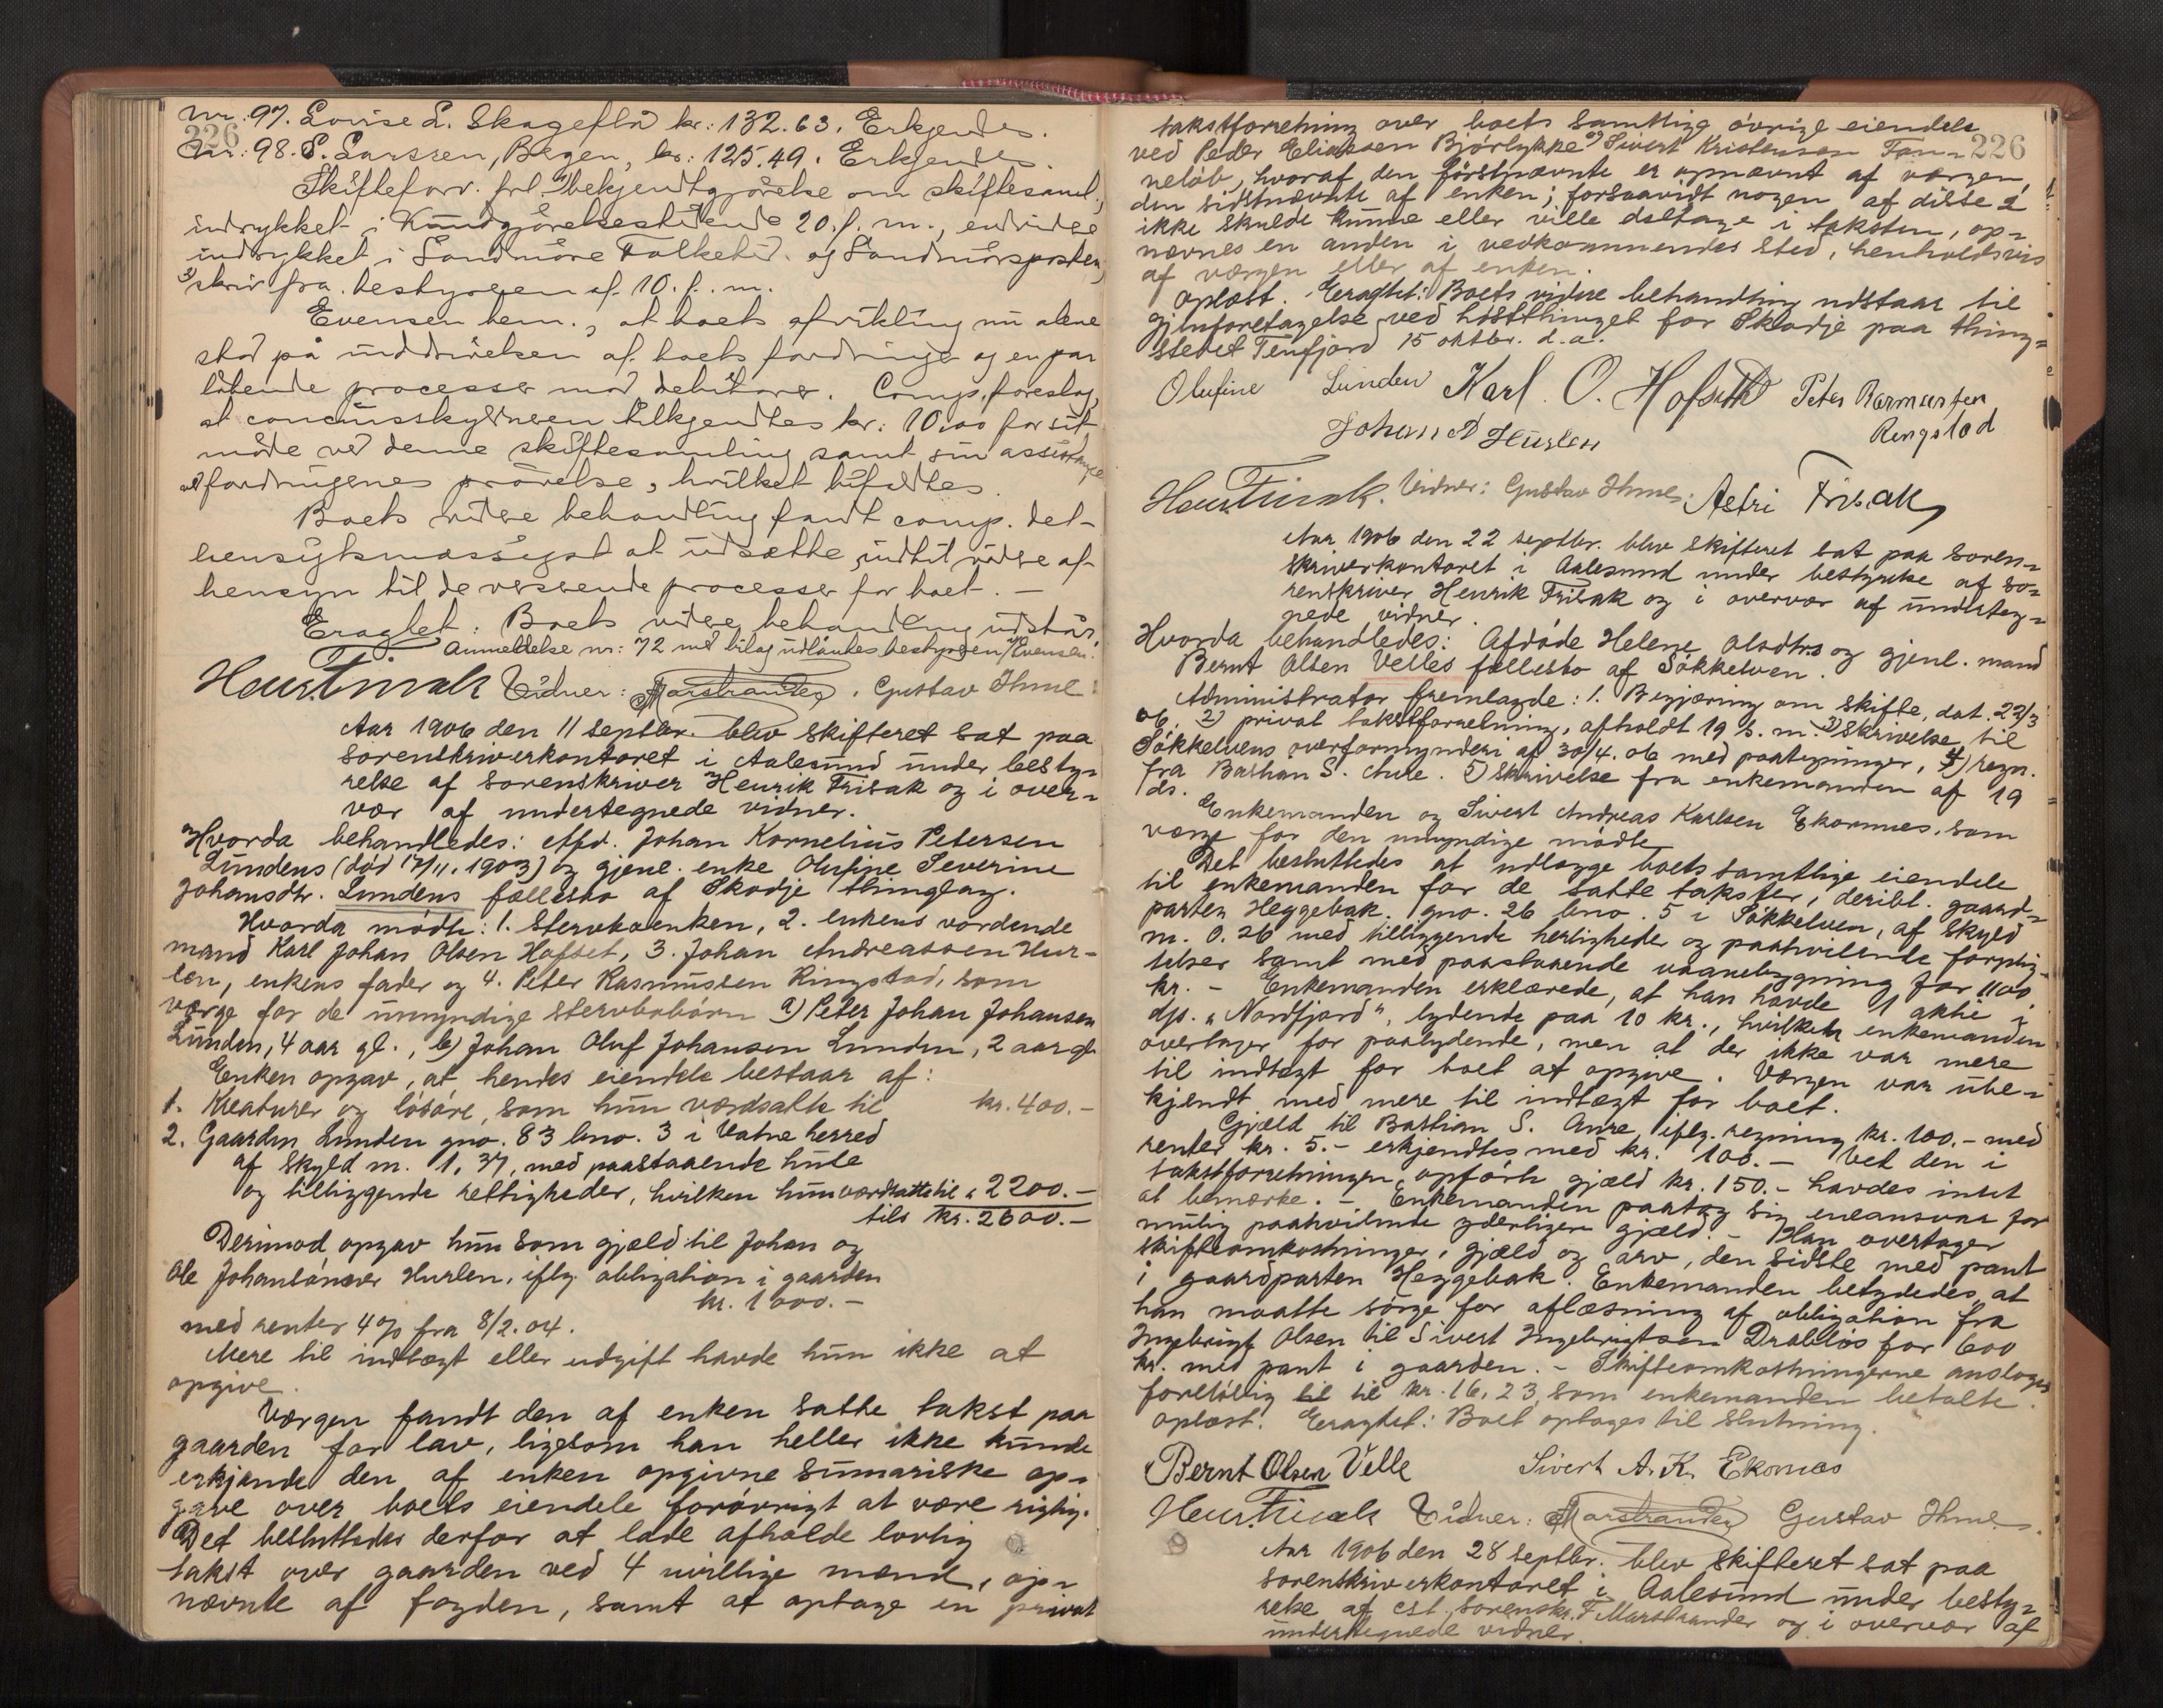 Nr: 97. Lovise L. Skageflå kr: 132.63. Erkjendes.
226
Nr: 98. P. Larssen, Bergen, kr: 125.49. Erkjendes.
Skifteforv. frl. 1) bekjendtgjørelse om skiftesaml.,
indrykket i Kundgjørelsestidende 20. f. m., endvidere
indrykket i Søndmøre Folketid. og Søndmørsposten,
3) skriv fra bestyreren af 10. f. m.
Evensen bem., at boets afvikling nu alene
stod på inddrivelsen af boets fordringer og en par
løbende processer mod debitorer. Comp. foreslog,
at concursskyldneren tilkjendtes kr: 10.00 for sit
møde ved denne skiftesamling samt sin assistance
ved fordringenes prøvelse, hvilket bifaldtes.
Boets videre behandling fandt comp. det
hensigtsmæssigst at udsætte indtil videre af
hensyn til de verserende processer for boet. –
Eragtet: Boets videre behandling udstår.
Anmeldelse nr: 72 med bilag udlåntes bestyreren Evensen.
Henr. Frisak Vidner: Marstrander. Gustav Ihme.
Aar 1906 den 11 septbr. blev skifteret sat paa
sorenskriverkontoret i Aalesund under besty=
relse af sorenskriver Henrik Frisak og i over=
vær af undertegnede vidner.
Hvorda behandledes: Afd. Johan Kornelius Petersen
Lundens (død 17/11. 1903) og gjenl. enke Olufine Severine
Johansdtr. Lundens fællesbo af Skodje thinglag.
Hvorda mødte: 1. Stervboenken, 2. enkens vordende
mand Karl Johan Olsen Hofset, 3. Johan Andreassen Hur-
len, enkens fader og 4. Peter Rasmussen Ringstad, som
værge for de umyndige stervbobørn a) Peter Johan Johansen
Lunden, 4 aar gl., b) Johan Oluf Johansen Lunden, 2 aar gl.
Enken opgav, at hendes eiendele bestaar af:
1. Kreaturer og løsøre, som hun værdsatte til kr. 400.–
2. Gaarden Lunden gno. 83 bno. 3 i Vatne herred
af skyld m. 1,37, med paastaaende huse
og tilliggende rettigheder, hvilken hun værdsatte til " 2200.–
tils kr. 2600.–
Derimod opgav hun som gjæld til Johan og
Ole Johansønner Hurlen, iflg. obligation i gaarden
kr. 1000.–
med renter 4% fra 8/2. 04.
Mere til indtægt eller udgift havde hun ikke at
opgive.
Værgen fandt den af enken satte takst paa
gaarden for lav, ligesom han heller ikke kunde
erkjende den af enken opgivne sumariske op=
gave over boets eiendele forøvrigt at være rigtig.
Det besluttedes derfor at lade afholde lovlig
takst over gaarden ved 4 uvillige mænd, op=
nævnte af fogden, samt at optage en privat
takstforretning over boets samtlige øvrige eiendele
226
ved Peder Eliassen Bjørlykke og Sivert Kristensen Ten=
neløb, hvoraf den førstnævnte er opnævnt af værgen,
den sidstnævnte af enken; forsaavidt nogen af disse 2
ikke skulde kunne eller ville deltage i taksten, op=
nævnes en anden i vedkommendes sted, henholdsvis
af værgen eller af enken.
Oplæst. Eragtet: Boets videre behandling udstaar til
gjenforetagelse ved høstthinget for Skodje paa thing=
stedet Tenfjord 15 oktbr. d. a.
Olufine Lunden Karl. O. Hofseth Peter Rasmusen
Ringstad
Johan A Hurlen
Henr. Frisak. Vidner: Gustav Ihme. Astri Frisak
Aar 1906 den 22 septbr. blev skifteret sat paa soren=
skriverkontoret i Aalesund under bestyrelse af so=
renskriver Henrik Frisak og i overvær af underteg=
nede vidner.
Hvorda behandledes: Afdøde Helene Olsdtrs og gjenl. mand
Bernt Olsen Velles fællesbo af Søkkelven.
Administrator fremlagde: 1. Begjæring om skifte, dat. 22/3
06, 2) privat takstforretning, afholdt 19 d. m. 3) skrivelse til
Søkkelvens overformynderi af 30/4. 06 med paategninger, 4) regn.
fra Bastian S. Aure. 5) skrivelse fra enkemanden af 19
ds.
Enkemanden og Sivert Andreas Karlsen Ekornnes, som
værge for den umyndige mødte.
Det besluttedes at udlægge boets samtlige eiendele
til enkemanden for de satte takster, deribl. gaard=
parten Heggebak, gno. 26 bno. 5 i Søkkelven, af skyld
m. 0.26 med tilliggende herligheder og paahvilende forplig-
telser samt med paastaaende vaanebygning for 1100
kr. – Enkemanden erklærede, at han havde 1 aktie i
d/s. "Nordfjord", lydende paa 10 kr., hvilken enkemanden
overtager for paalydende, men at der ikke var mere
til indtægt for boet at opgive. Værgen var ube=
kjendt med mere til indtægt for boet.
Gjæld til Bastian S. Aure, iflg. regning kr. 100.– med
renter kr. 5.– erkjendtes med kr. 100.– Ved den i
takstforretningen opførte gjæld kr. 150.– havdes intet
at bemærke. – Enkemanden paatog sig eneansvar for
mulig paahvilende yderligere gjæld. – Han overtager
skifteomkostninger, gjæld og arv, den sidste med pant
i gaardparten Heggebak. Enkemanden betydedes, at
han maatte sørge for aflæsning af obligation fra
Ingebrigt Olsen til Sivert Ingebrigtsen Drabløs for 600
kr. med pant i gaarden. – Skifteomkostningerne ansloges
foreløbig til til kr. 16,23, som enkemanden betalte.
Oplæst. Eragtet: Boet optages til slutning.
Bernt Olsen Velle Sivert A. K. Ekornæs
Henr. Frisak Vidner: Marstrander Gustav Ihme.
Aar 1906 den 28 septbr. blev skifteret sat paa
sorenskriverkontoret i Aalesund under besty=
relse af cst. sorenskr. F Marstrander og i overvær af
undertegnede vidner.